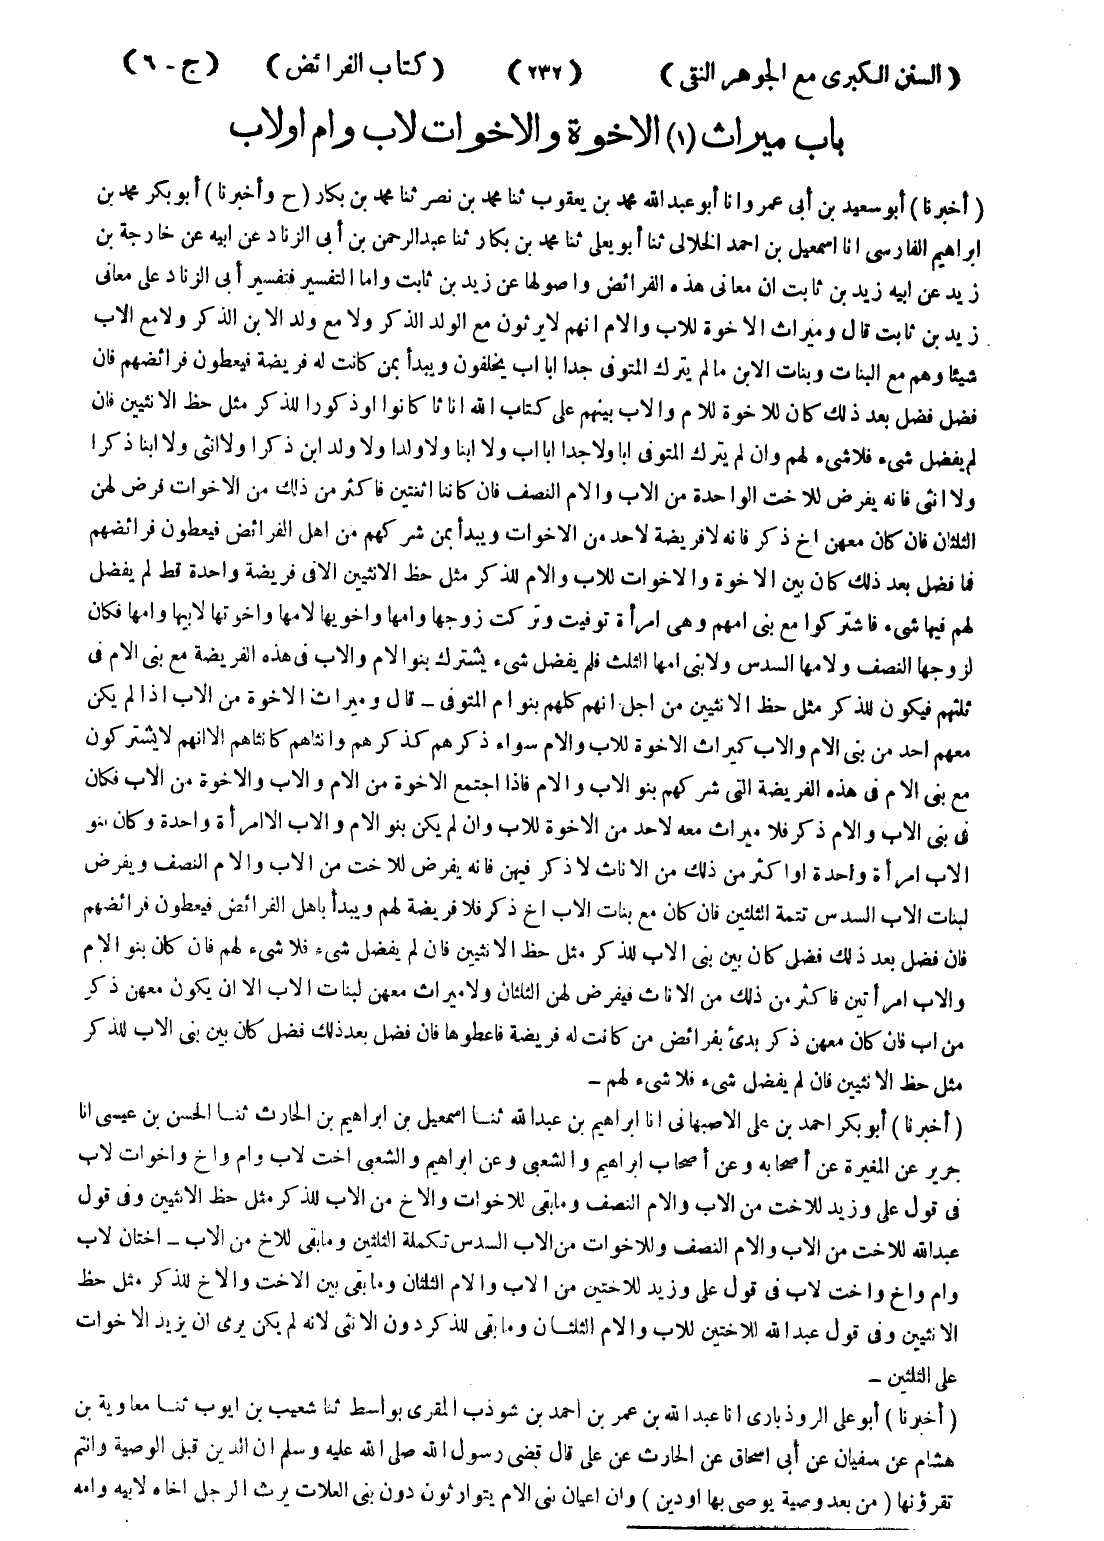 (السنن الكبرى مع الجوهر النقى) (٢٣٢) (كتاب الفرائض) (ج - ٦)
باب ميراث (١) الاخوة والاخوات لاب وام اولاب
(أخبرنا) أبو سعيد بن أبى عمرو انا أبو عبد الله محمد بن يعقوب ثنا محمد بن نصر ثنا محمد بن بكار (ح وأخبرنا) أبو بكر محمد بن
ابراهيم الفارسى انا اسمعيل بن احمد الخلالى ثنا أبو يعلى ثنا محمد بن بكار ثنا عبدالرحمن بن أبى الزناد عن ابيه عن خارجة بن
زيد عن ابيه زيد بن ثابت ان معانى هذه الفرائض واصولها عن زيد بن ثابت واما التفسير فتفسير أبى الزناد على معانى
زيد بن ثابت قال وميراث الاخوة للاب والام انهم لايرثون مع الولد الذكر ولا مع ولد الابن الذكر ولامع الاب
شيئا وهم مع البنات وبنات الابن مالم يترك المتوفى جدا ابا اب يخلفون ويبدأ بمن كانت له فريضة فيعطون فرائضهم فان
فضل فضل بعد ذلك كان للاخوة للام والاب بينهم على كتاب الله اناثا كانوا اوذكورا للذكر مثل حظ الانثيين فان
لم يفضل شىء فلاشىء لهم وان لم يترك المتوفى ابا ولاجدا ابا اب ولا ابنا ولاولدا ولا ولد ابن ذكرا ولاانثى ولا ابنا ذكرا
ولا انثى فانه يفرض للاخت الواحدة من الاب والام النصف فان كانتا اثنتين فاكثر من ذلك من الاخوات فرض لهن
الثلثان فان كان معهن اخ ذكر فانه لافريضة لاحد من الاخوات ويبدأ بمن شركهم من اهل الفرائض فيعطون فرائضهم
فما فضل بعد ذلك كان بين الاخوة والاخوات للاب والام للذكر مثل حظ الانثيين الافى فريضة واحدة قط لم يفضل
لهم فيها شىء فاشتركوا مع بنى امهم وهى امرأة توفيت وتركت زوجها وامها واخويها لامها واخوتها لابيها وامها فكان
لزوجها النصف ولامها السدس ولابنى امها الثلث فلم يفضل شىء يشترك بنوا الام والاب فى هذه الفريضة مع بنى الام فى
ثلثهم فيكون للذكر مثل حظ الانثيين من اجل انهم كلهم بنو ام المتوفى - قال وميراث الاخوة من الاب اذا لم يكن
معهم احد من بنى الام والاب كميراث الاخوة للاب والام سواء ذكرهم كذكرهم وانثاهم كانثاهم الاانهم لايشتركون
مع بنى الام فى هذه الفريضة التى شركهم بنو الاب والام فاذا اجتمع الاخوة من الام والاب والاخوة من الاب فكان
فى بنى الاب والام ذكر فلا ميراث معه لاحد من الاخوة للاب وان لم يكن بنو الام والاب الاامرأة واحدة وكان بنو
الاب امرأة واحدة اواكثر من ذلك من الاناث لاذكر فيهن فانه يفرض للاخت من الاب والام النصف ويفرض
لبنات الاب السدس تتمة الثلثين فان كان مع بنات الاب اخ ذكر فلا فريضة لهم ويبدأ باهل الفرائض فيعطون فرائضهم
فان فضل بعد ذلك فضل كان بين بنى الاب للذكر مثل حظ الانثيين فان لم يفضل شىء فلا شىء لهم فان كان بنو الام
والاب امرأتين فاكثر من ذلك من الاناث فيفرض لهن الثلثان ولاميراث معهن لبنات الاب الا ان يكون معهن ذكر
من اب فان كان معهن ذكر بدئ بفرائض من كانت له فريضة فاعطوها فان فضل بعدذلك فضل كان بين بنى الاب للذكر
مثل حظ الانثيين فان لم يفضل شىء فلا شىء لهم -
(أخبرنا) أبو بكر احمد بن على الاصبهانى انا ابراهيم بن عبدالله ثنا اسمعيل بن ابراهيم بن الحارث ثنا الحسن بن عيسى انا
جرير عن المغيرة عن أصحابه وعن أصحاب ابراهيم والشعبى وعن ابراهيم والشعبى اخت لاب وام واخ واخوات لاب
فى قول على وزيد للاخت من الاب والام النصف ومابقى للاخوات والاخ من الاب للذكر مثل حظ الانثيين وفى قول
عبدالله للاخت من الاب والام النصف وللاخوات من الاب السدس تكملة الثلثين ومابقى للاخ من الاب - اختان لاب
وام واخ واخت لاب فى قول على وزيد للاختين من الاب والام الثلثان ومابقى بين الاخت والاخ للذكر مثل حظ
الانثيين وفى قول عبدالله للاختين للاب والام الثلثان ومابقى للذكر دون الانثى لانه لم يكن يرى ان يزيد الاخوات
على الثلثين -
(أخبرنا) أبو على الروذبارى انا عبدالله بن عمر بن أحمد بن شوذب المقرى بواسط ثنا شعيب بن ايوب ثنا معاوية بن
هشام عن سفيان عن أبى اسحاق عن الحارث عن على قال قضى رسول الله صلى الله عليه وسلم ان الدين قبل الوصية وانتم
تقرؤنها (من بعد وصية يوصى بها اودين) وان اعيان بنى الام يتوارثون دون بنى العلات يرث الرجل اخاه لابيه وامه